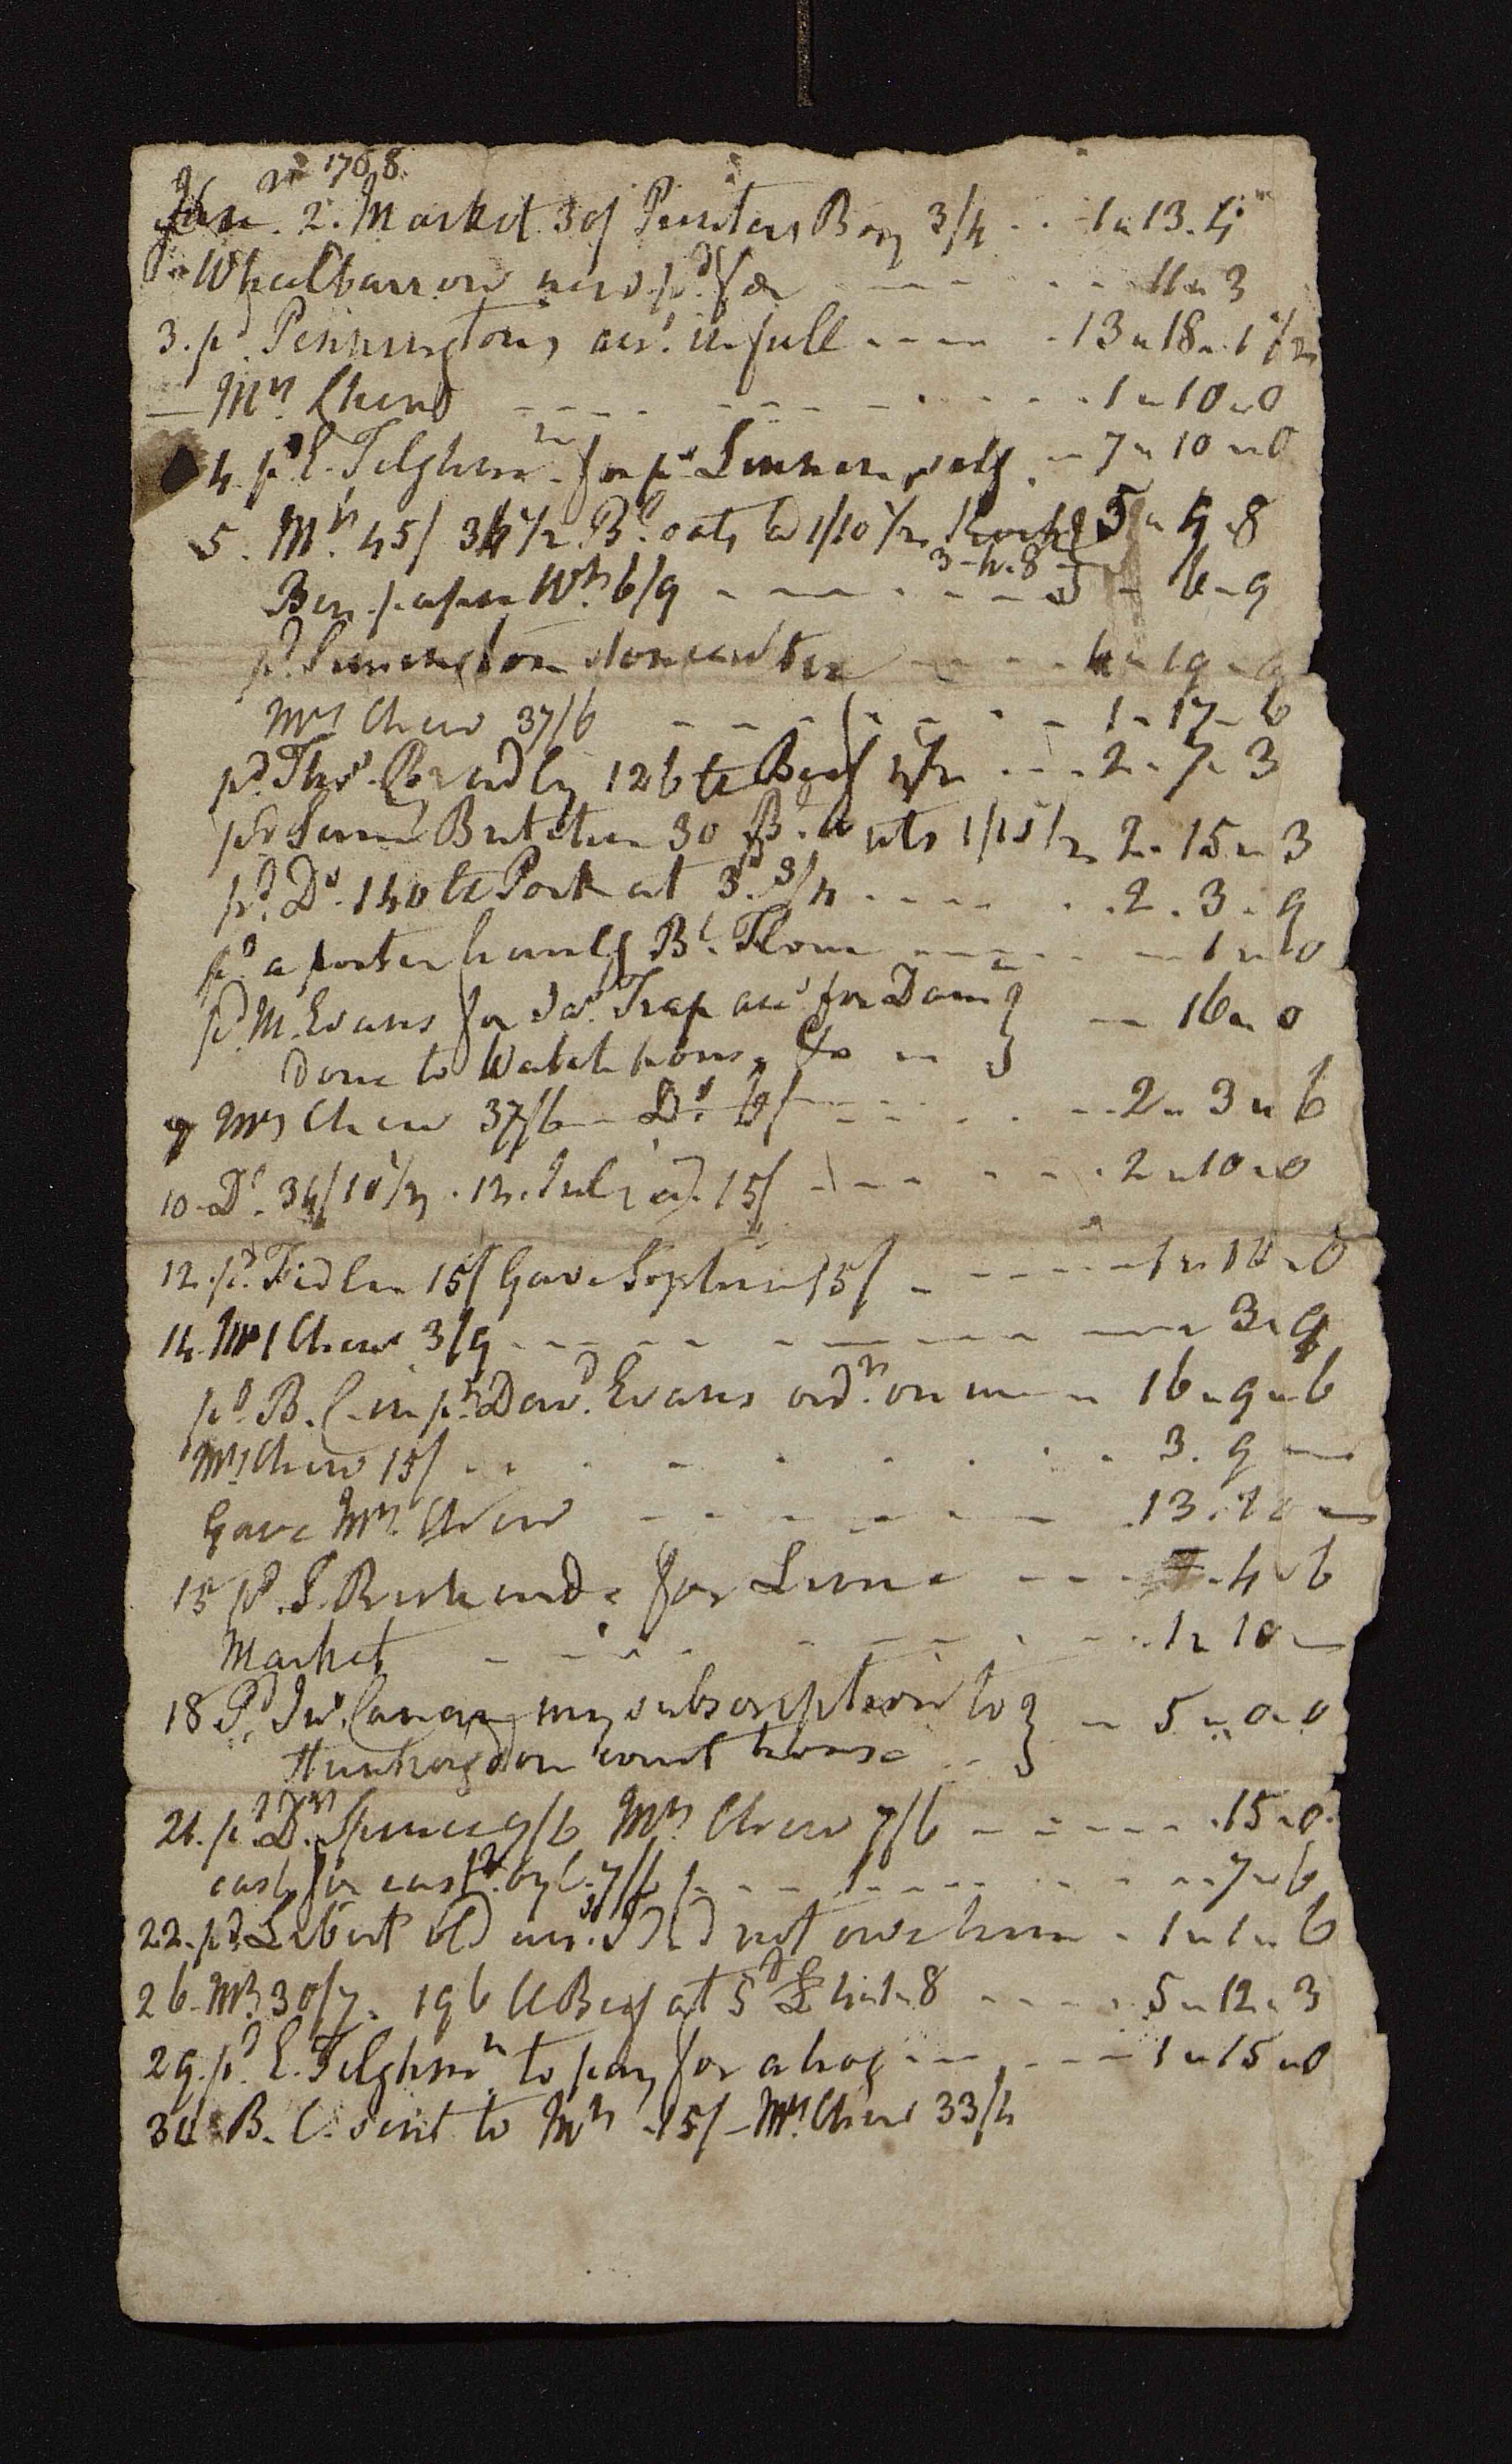 1768
Jan. 2. Market 30/ Painters Boy 3/4 - - 1 " 13 " 4
Wheelbarrow new pd. for - - - - 11 " 3
3. pd. Penningtons acct. in full - - - - 13 " 18 " 1 1/2
— Mrs. Chew - - - - 1 " 10 " 0
4. pd. E. Tilghmn. for ps. Linnen - 7 " 10 " 0
5. Mrs. 45/ 34 1/2 Bl. oats @ 1/10 1/2 5 " 9 " 8
3 - 4 - 8
Ben. paper Wk. 6/9 - - - - - 6 - 9
pd. - - - 4 " 19 - 9
Mrs Chew 37/6 - - - - - 1 " 17 - 6
pd. Thos. 126 lb Beef 4 1/2 - - - 2 - 7 - 3
pd Saml 30 Bl. oats 1/10 1/2 2 " 15 " 3
pd. Do. 140 lb Pork at 3d. 3/4 - - - - 2 . 3 . 9
pd. a porter haulg Bl. Flour - - - - - 1 " 10
pd. M. Evans for Jas. Trap acct for Dam } - 16 " 0
Done to Watch house &c - }
9 Mrs Chew 37/6 - Do. 6/ - - - - - - 2 " 3 " 6
10 - Do. 34/10 1/2 . 12. 15/ - - - - - - 2 " 10 " 0
12. pd. Fidler 15/ Gave Sophia 15/ - - - - - 1 " 10 " 0
14. Mrs Chew 3/9 - - - - - - - - 3 " 9
pd. B. C. in pt. Davd. Evans ordr. on me - 16 " 9 " 6
Mrs Chew 15/ - - - - - - - - 3 . 9 —
Gave Mrs. Chew - - - - - - 13 . 10 —
15 pd. S. Richards for Lime - - - 7 - 4 " 6
Market - - - - - - - - - - 1 " 10 —
18 Pd. Jno. Canan my subscription to } - 5 " 0 " 0
Huntingdon court house - - }
21. pd. Dr. Spence 7/6 Mrs. Chew 7/6 - - - - - 15 " 0
cash for by C. 7/6 - - - - - - - - 7 " 6
22. pd. old acct. I did not owe him - 1 " 1 " 6
26 - Mrs. 30/7. 196 lb Beef at 5d £4 " 1 " 8 - - - - 5 " 12 " 3
29. pd. E. Tilghmn. to pay for a hog - - - - 1 " 15 " 0
30 B. C. sent to Mrs - 15/ - Mrs. Chew 33/4